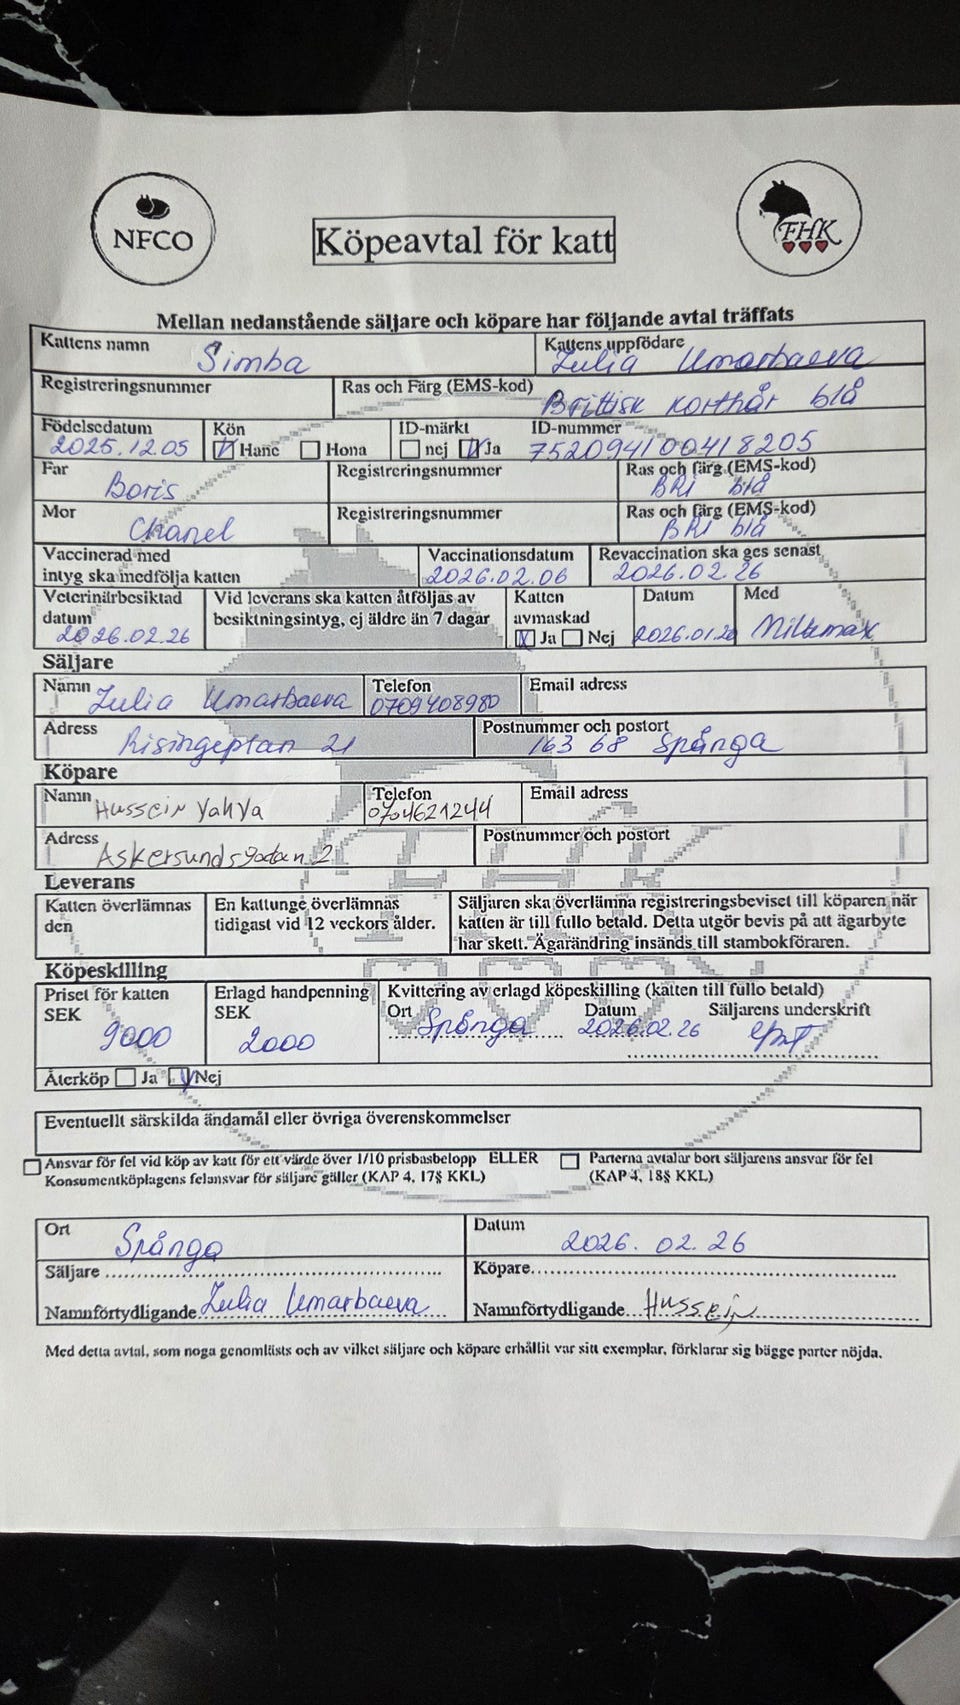 NFCO
Köpeavtal för katt
FHK
Mellan nedanstående säljare och köpare har följande avtal träffats
Kattens namn Simba Kattens uppfödare Zulia Umarbaeva
Registreringsnummer Ras och Färg (EMS-kod) Brittisk korthår blå
Födelsedatum 2025.12.05 Kön Hane Hona ID-märkt nej Ja ID-nummer 752094100418205
Far Boris Registreringsnummer Ras och färg (EMS-kod) BRI blå
Mor Chanel Registreringsnummer Ras och färg (EMS-kod) BRI blå
Vaccinerad med intyg ska medfölja katten Vaccinationsdatum 2026.02.06 Revaccination ska ges senast 2026.02.26
Veterinärbesiktad datum 2026.02.26 Vid leverans ska katten åtföljas av besiktningsintyg, ej äldre än 7 dagar Katten avmaskad Ja Nej Datum 2026.01.20 Med Milbmax
Säljare
Namn Zulia Umarbaeva Telefon 0709408980 Email adress
Adress Risingeplan 21 Postnummer och postort 163 68 Spånga
Köpare
Namn Hussein Yahya Telefon 0704621244 Email adress
Adress Askersundsgatan 2 Postnummer och postort
Leverans
Katten överlämnas den En kattunge överlämnas tidigast vid 12 veckors ålder. Säljaren ska överlämna registreringsbeviset till köparen när katten är till fullo betald. Detta utgör bevis på att ägarbyte har skett. Ägarändring insänds till stambokföraren.
Köpeskilling
Priset för katten SEK 9000 Erlagd handpenning SEK 2000 Kvittering av erlagd köpeskilling (katten till fullo betald)
Ort Spånga Datum 2026.02.26 Säljarens underskrift
Återköp Ja Nej
Eventuellt särskilda ändamål eller övriga överenskommelser
Ansvar för fel vid köp av katt för ett värde över 1/10 prisbasbelopp ELLER Parterna avtalar bort säljarens ansvar för fel
Konsumentköplagens felansvar för säljare gäller (KAP 4, 17§ KKL) (KAP 4, 18§ KKL)
Ort Spånga Datum 2026. 02. 26
Säljare Köpare
Namnförtydligande Zulia Umarbaeva Namnförtydligande Hussein
Med detta avtal, som noga genomlästs och av vilket säljare och köpare erhållit var sitt exemplar, förklarar sig bägge parter nöjda.